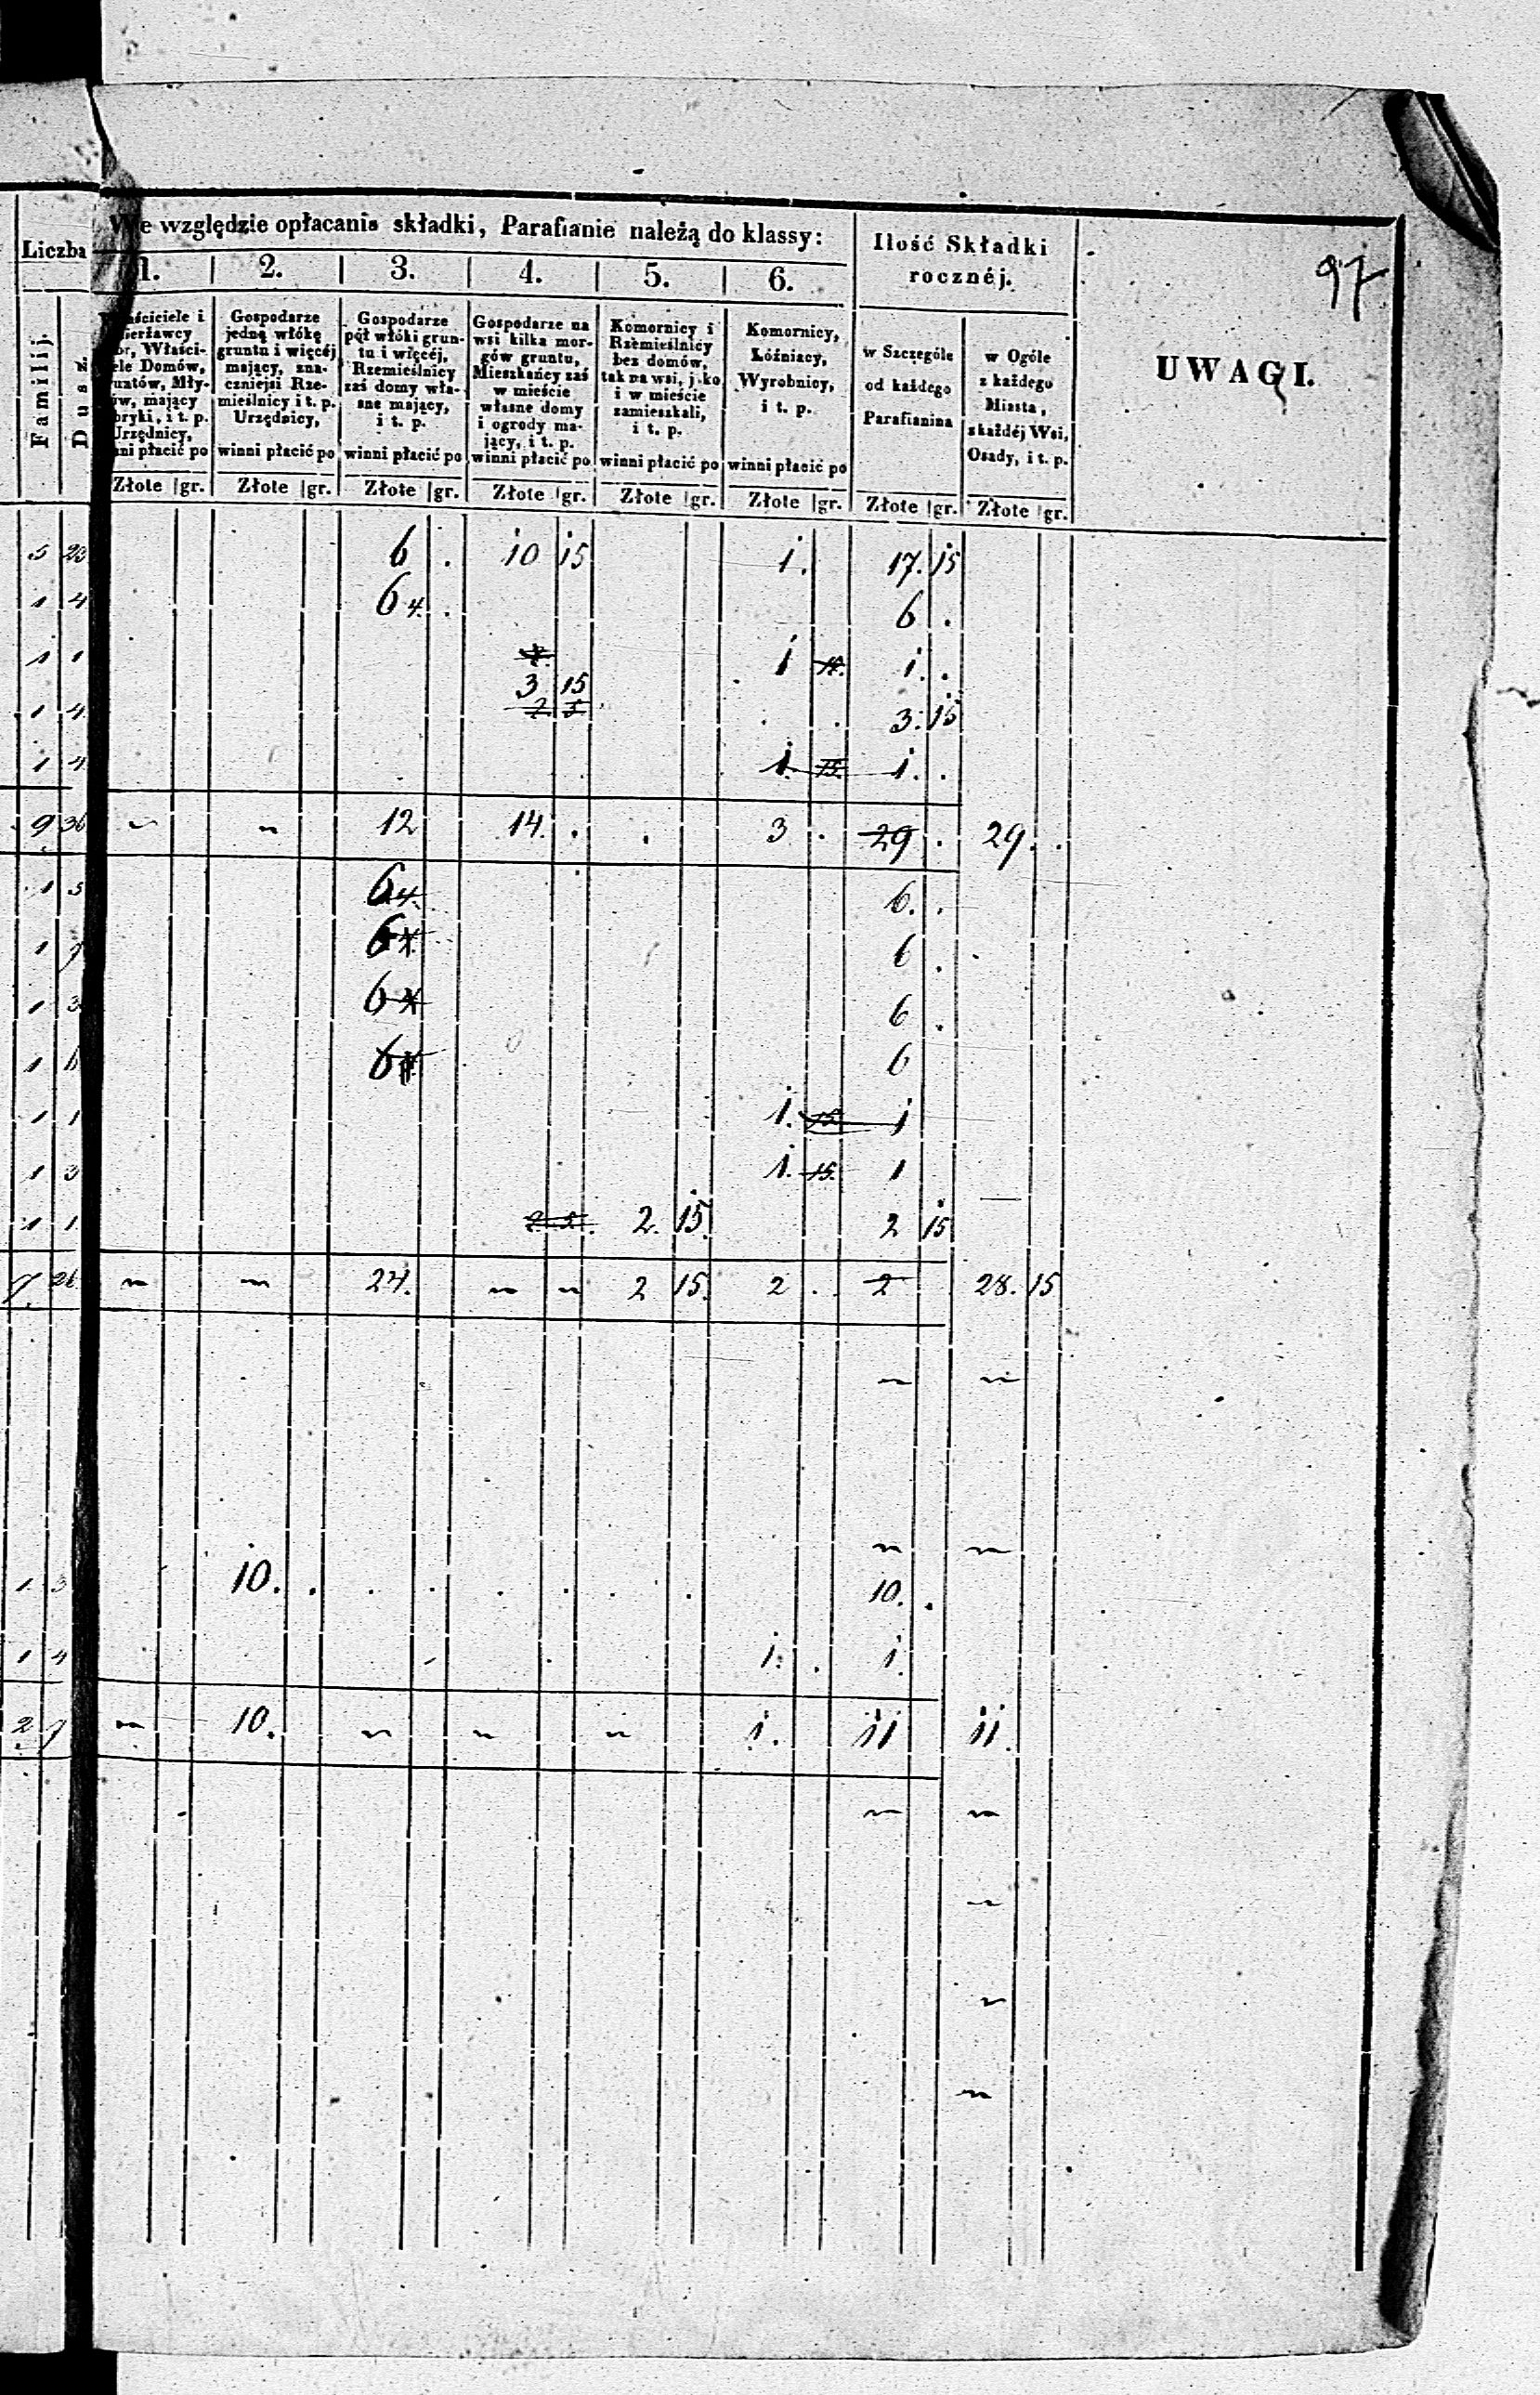 97
We względzie opłacania składki, Parafianie należą do klassy:
Liczba
Familij.
Dusz.
1. 2. 3. 4. 5. 6.
Ilość Składki
rocznéj.
UWAGI.
Gospodarze
jedną włókę
gruntu i więcéj
mający, zna-
czniejsi Rze-
mieślnicy i t. p.
Urzędnicy,
winni płacić po
Gospodarze
pół włóki grun-
tu i więcéj,
Rzemieślnicy
zaś domy wła-
sne mający,
i t. p.
winni płacić po
Gospodarze na
wsi kilka mor-
gów gruntu,
Mieszkańcy zaś
w mieście
własne domy
i ogrody ma-
jący, i t. p.
winni płacić po
Komornicy i
Rzemieślnicy
bez domów,
tak na wsi, jako
i w mieście
zamieszkali,
i t. p.
winni płacić po
Komornicy,
Łóźniacy,
Wyrobnicy,
i t. p.
winni płacić po
w Szczególe
od każdego
Parafianina
w Ogóle
z każdego
Miasta,
z każdéj Wsi,
Osady, i t. p.
Złote gr. Złote gr. Złote gr. Złote gr. Złote gr. Złote gr. Złote gr. Złote gr.
5 23 6 . 10 15 1. 17. 15
1 4 6 4. . 6 .
1 1 1 1. .
1 4. 3 15 3. 15
1 4 1. 15. 1. .
9 36 12 14. . . 3 . 29 . 29. .
1 5 6 4. 6. .
1 7 6 6 .
1 3 6 6 .
1 6 6 6
1 1 1. 15 1
1 3 1. 15. 1
1 1. 2. 15. 2 15
7. 26 24. 2 15. 2 . 2 28. 15
1. 3 10. . 10. .
1 4 1. . 1.
2 7 10. 1. 11 11.